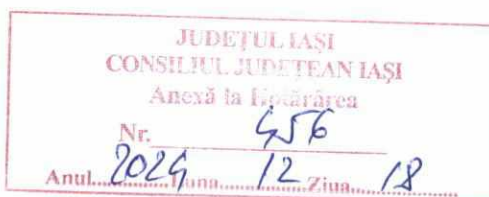 JUDEȚUL IAȘI
CONSILIUL JUDEȚEAN IAȘI
Anexă la Hotărârea
Nr. 456
Anul 2024 Luna 12 Ziua 18